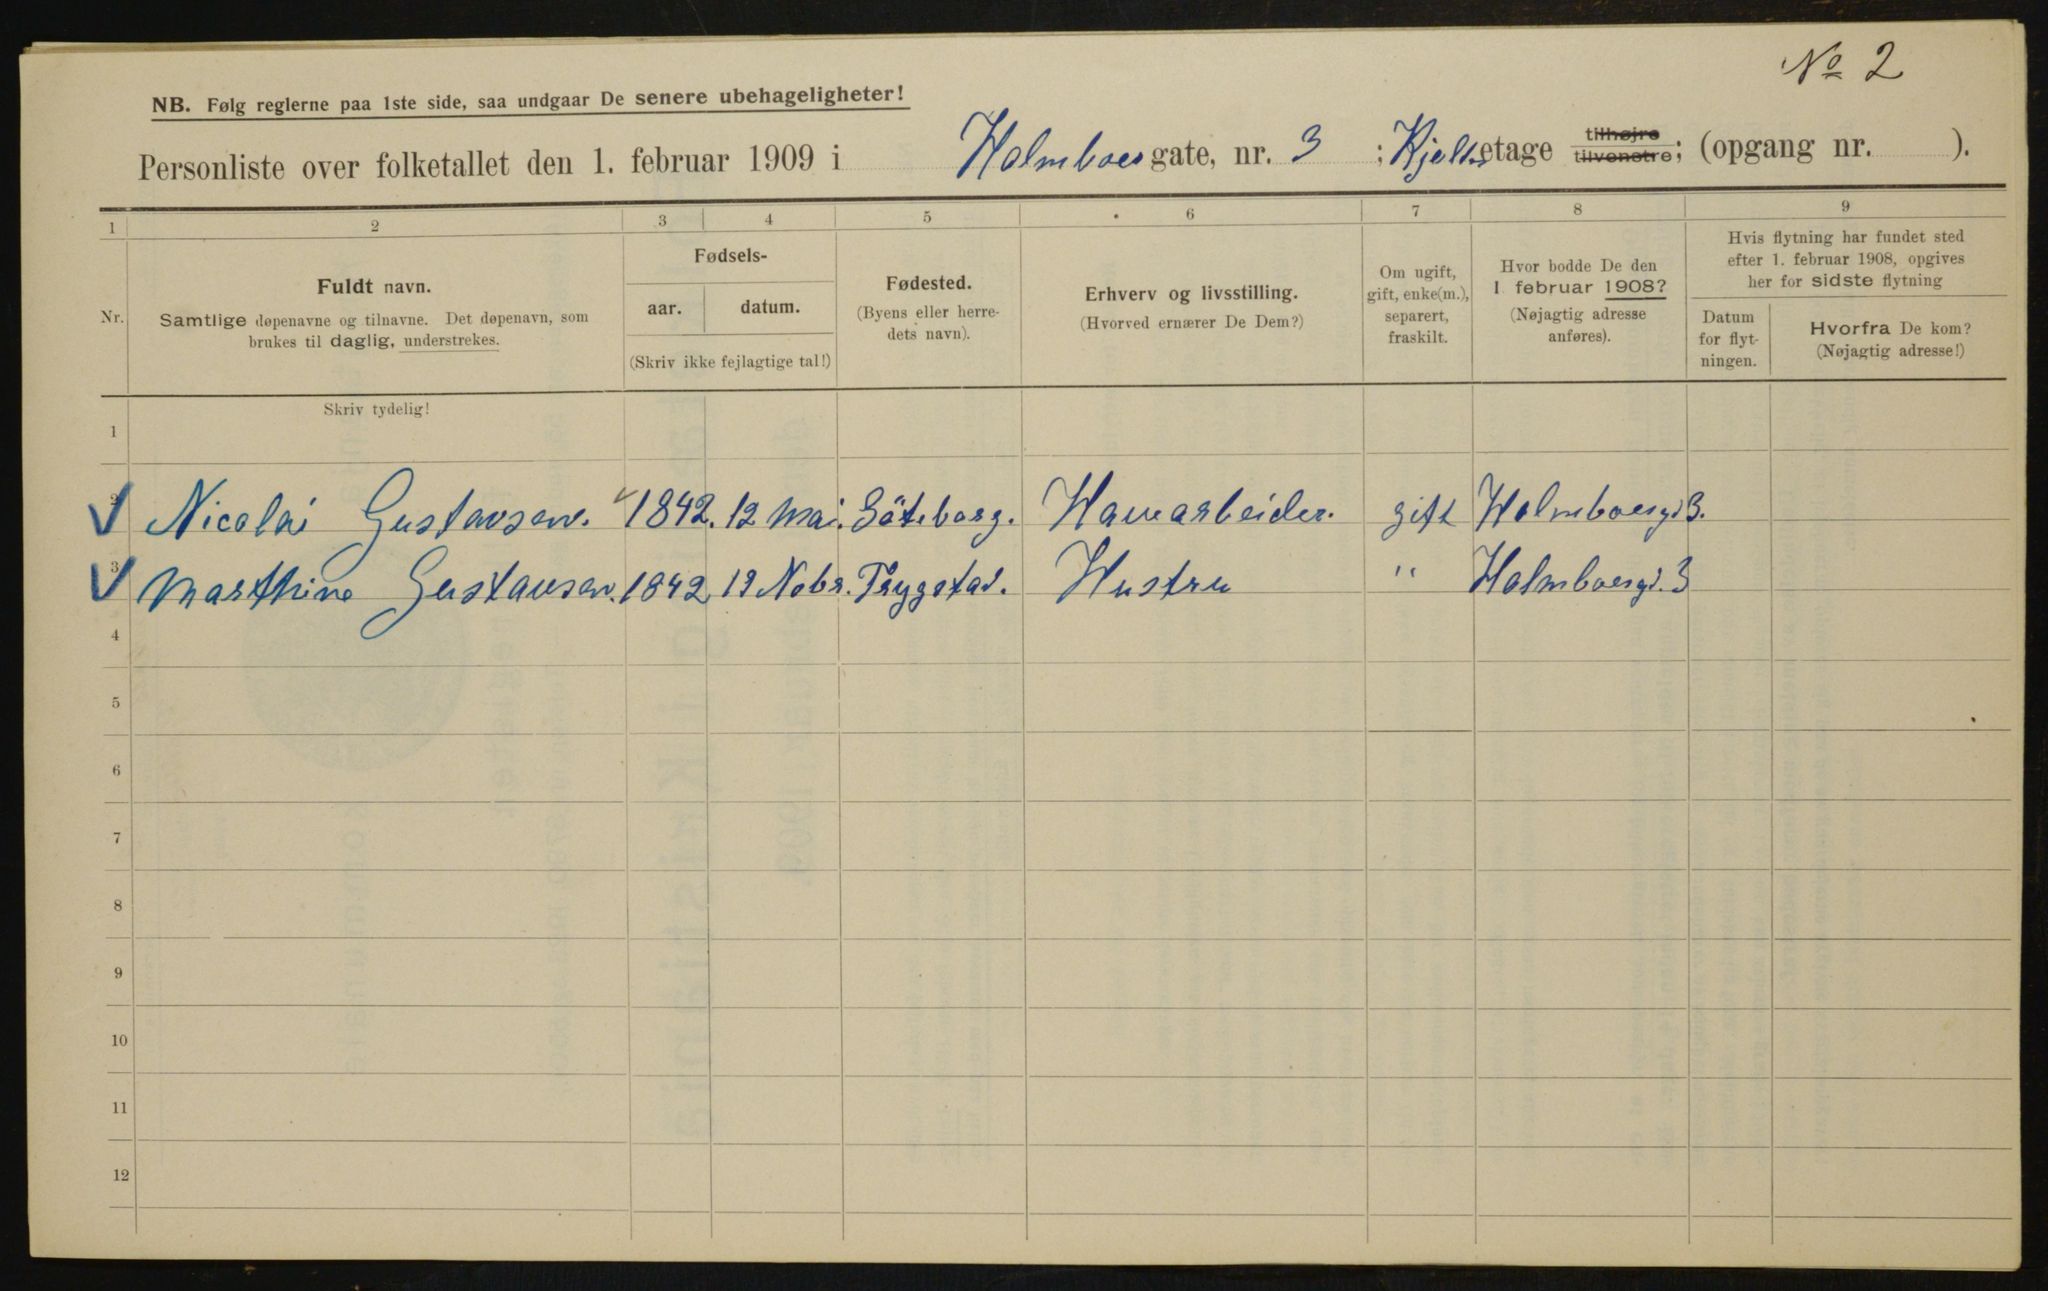 No 2
NB. Følg reglerne paa 1ste side, saa undgaar De senere ubehageligheter!
Personliste over folketallet den 1. februar 1909 i Holmboes gate, nr. 3 ; Kjeld.etage tilhøjre tilvenstre; (opgang nr. ).
1 2 3 4 5 6 7 8 9
Nr.
Fuldt navn.
Samtlige døpenavne og tilnavne. Det døpenavn, som
brukes til daglig, understrekes.
Fødsels-
aar. datum.
(Skriv ikke fejlagtige tal!)
Fødested.
(Byens eller herre-
dets navn).
Erhverv og livsstilling.
(Hvorved ernærer De Dem?)
Om ugift,
gift, enke(m.),
separert,
fraskilt.
Hvor bodde De den
1 februar 1908?
(Nøjagtig adresse
anføres).
Hvis flytning har fundet sted
efter 1. februar 1908, opgives
her for sidste flytning
Datum
for flyt-
ningen.
Hvorfra De kom?
(Nøjagtig adresse!)
Skriv tydelig!
1
2 Nicolai Gustavsen. 1842. 12 Mai. Göteborg. Havearbeider. gift Holmboesgd 3.
3 Marthine Gustavsen. 1842 19 Nobr. Trygstad. Hustru " Holmboesgd. 3
4
5
6
7
8
9
10
11
12